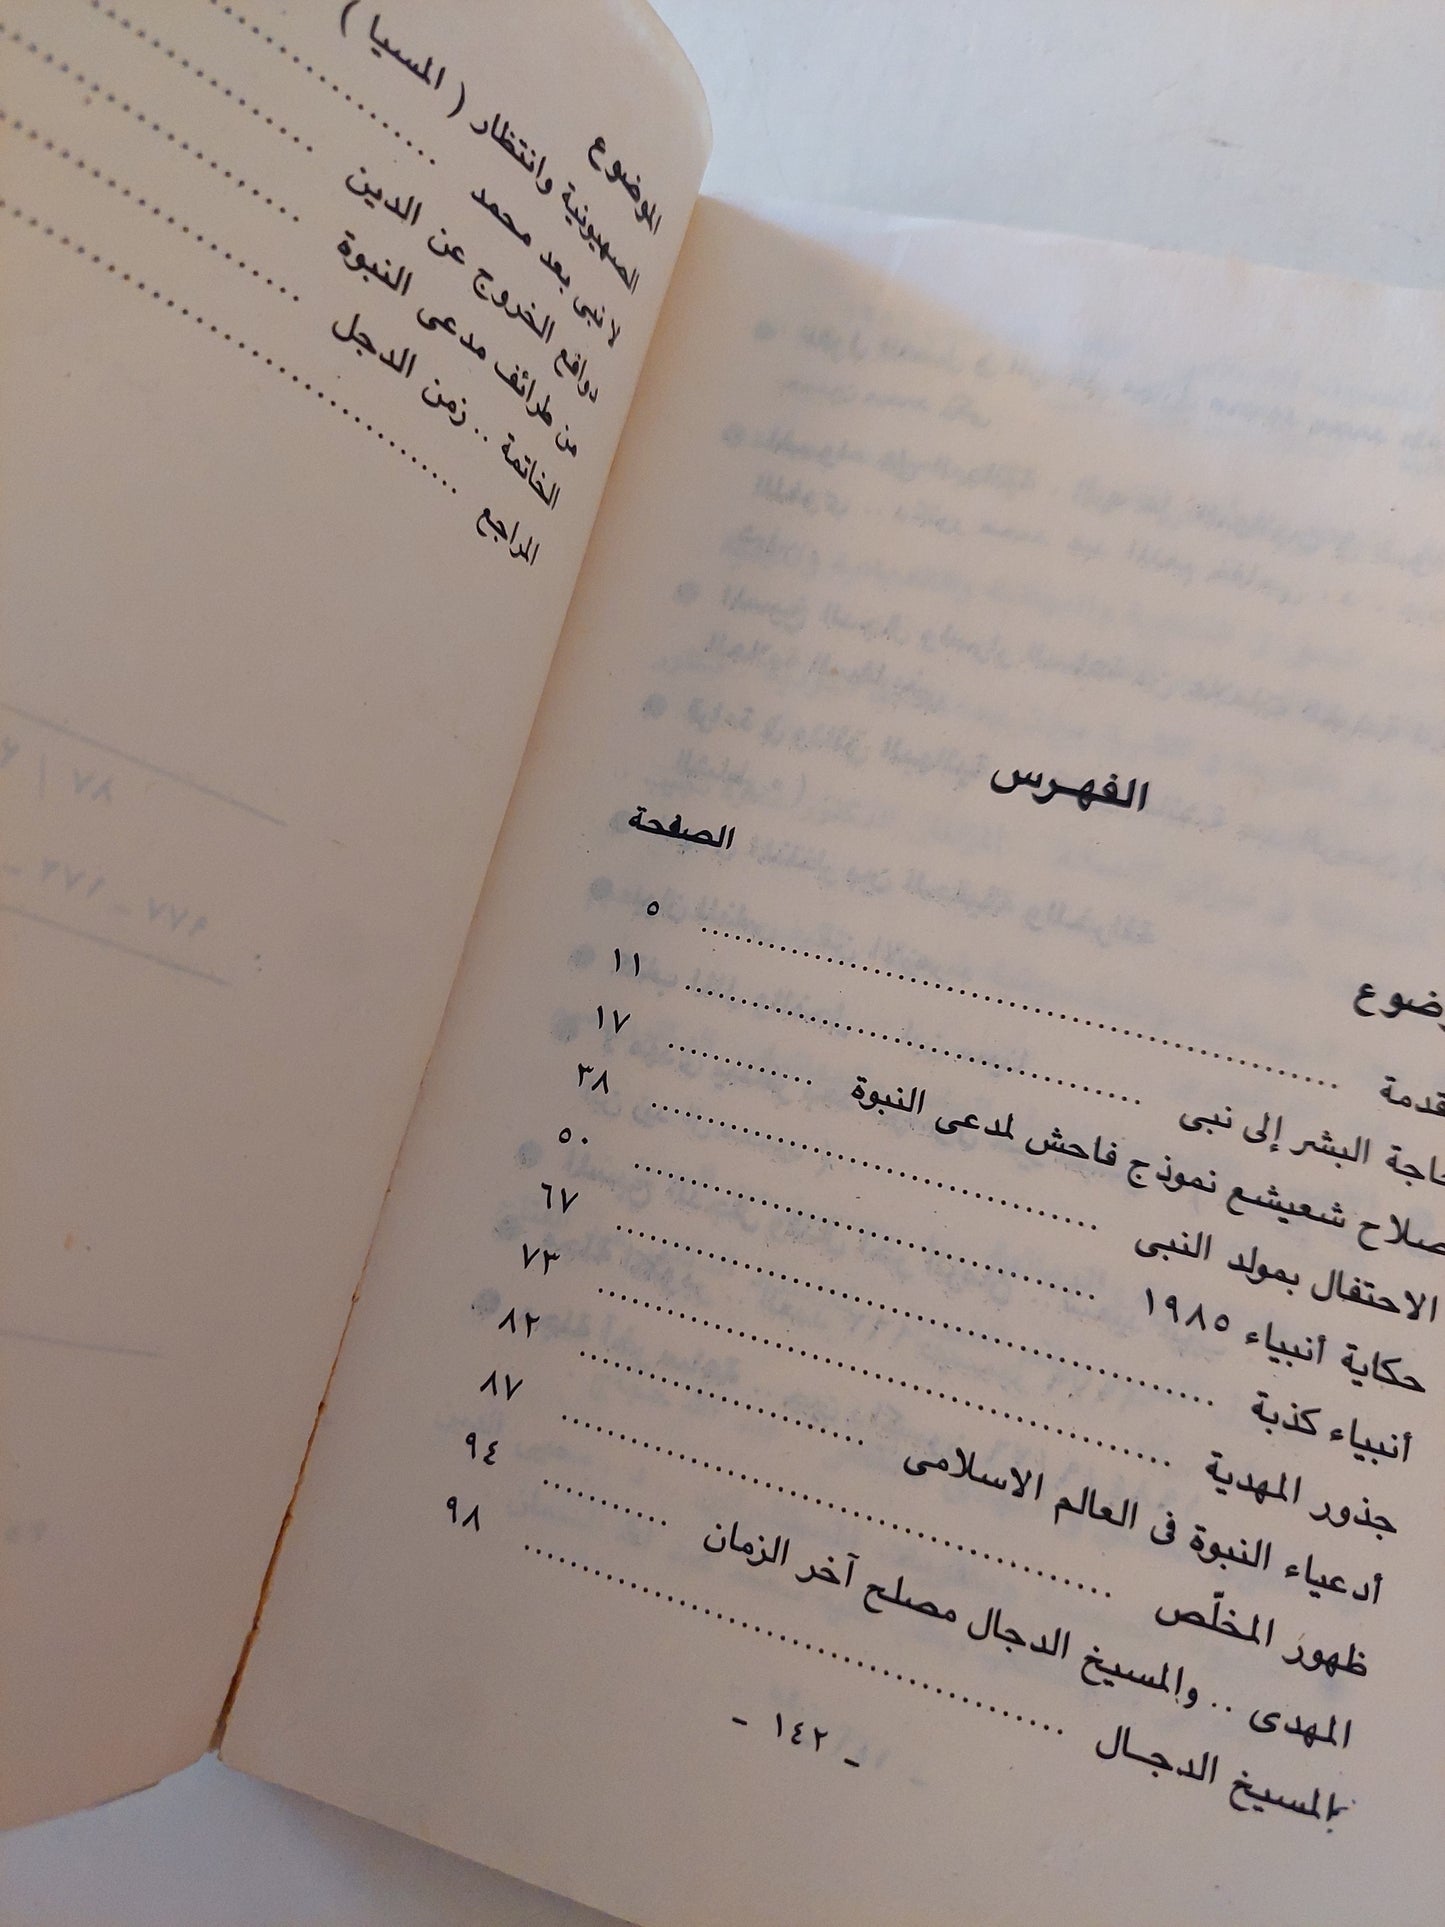 الفهرس
الصفحة
قدمة ٥
اجة البشر إلى نبى ١١
صلاح شعيشع نموذج فاحش لمدعى النبوة ١٧
الاحتفال بمولد النبى ٣٨
حكاية أنبياء ١٩٨٥ ٥٠
أنبياء كذبة ٦٧
جذور المهدية ٧٣
أدعياء النبوة فى العالم الاسلامى ٨٢
ظهور المخلّص ٨٧
المهدى .. والمسيخ الدجال مصلح آخر الزمان ٩٤
المسيخ الدجـال ٩٨
- ١٤٢ -
الموضوع
الصهيونية وانتظار ( المسيا )
لا نبى بعد محمد
دوافع الخروج عن الدين
من طرائف مدعى النبوة
الخاتمة .. زمن الدجل
المراجع